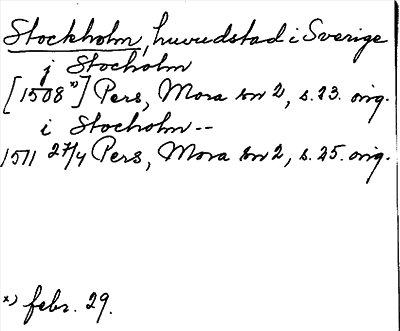 Stockholm, huvudstad i Sverige
j Stocholm
[1508 x)] Pers, Mora sn 2, s. 23. orig.
i Stocholm--
1511 27/4 Pers, Mora sn 2, s. 25. orig.
x) febr. 29.